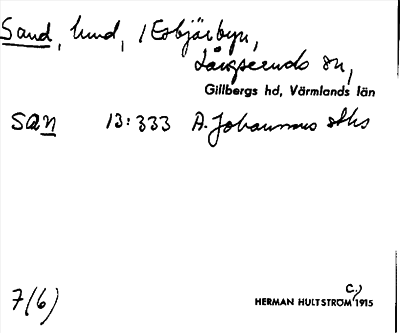 Sand, lund, / Esbjörbyn,
Långseruds sn,
Gillbergs hd, Värmlands län
san 13:333 A. Johannas dtks
7(6)
C.)
HERMAN HULTSTRÖM 1915